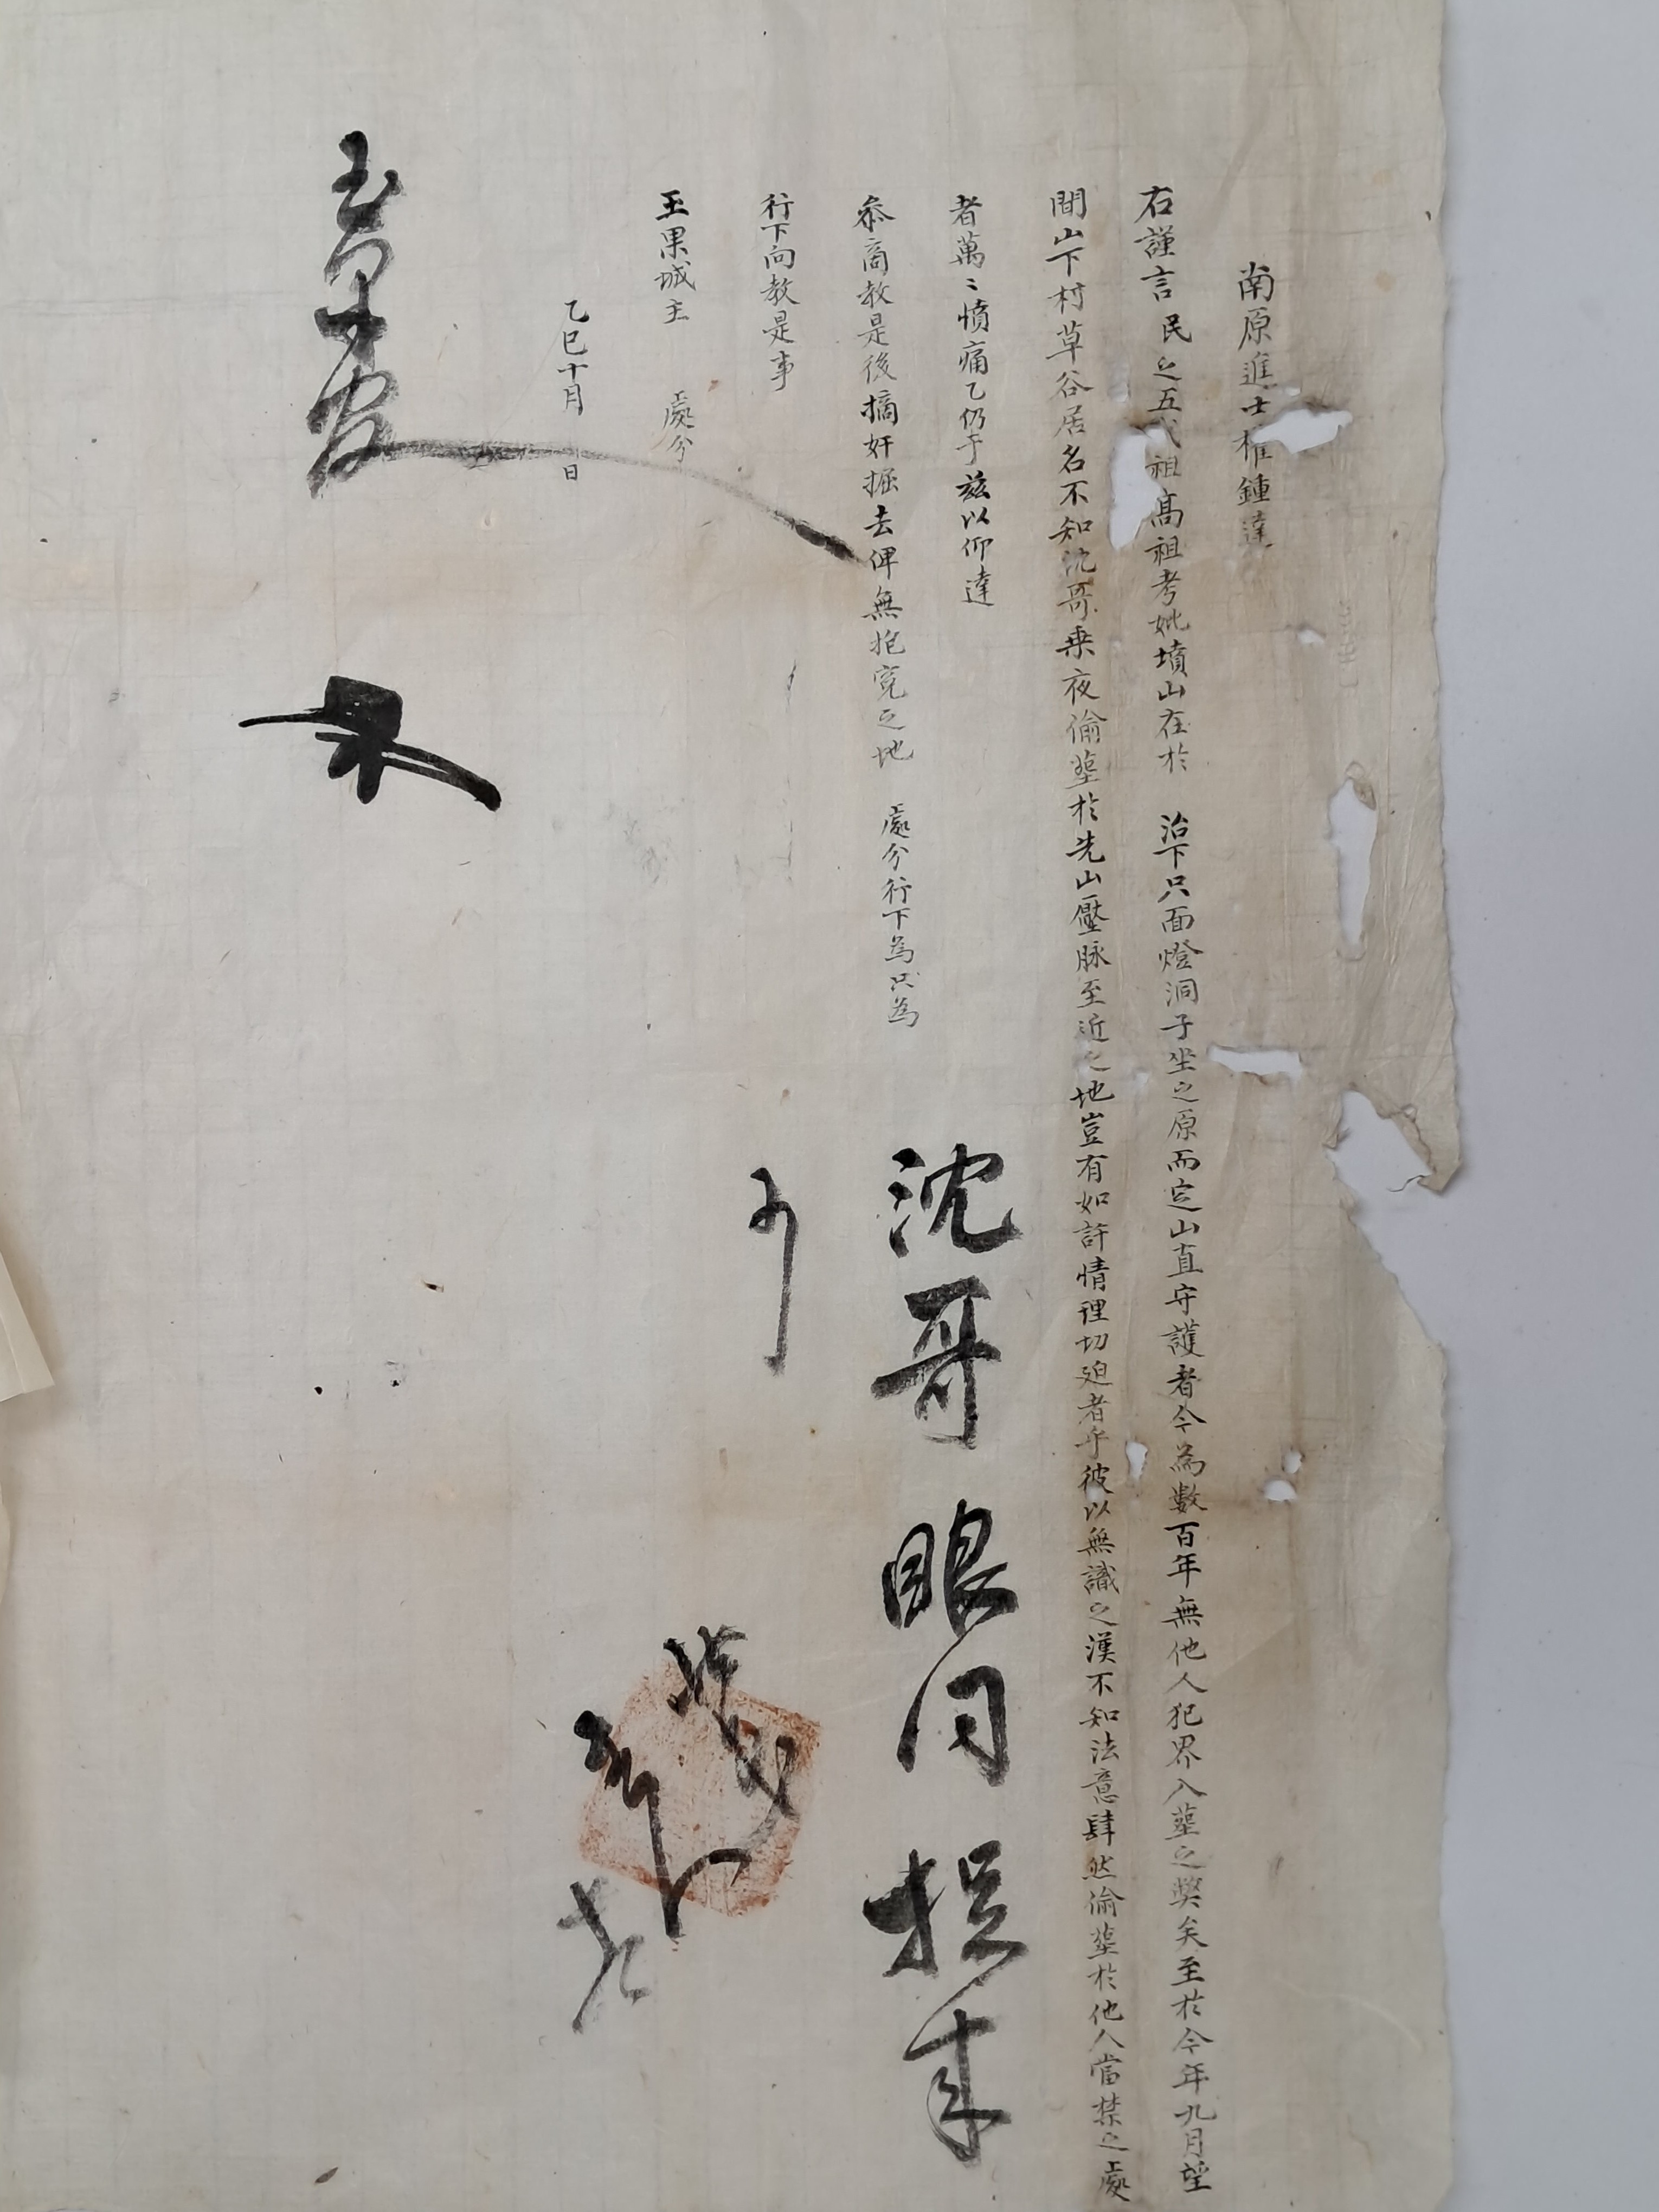 南原進士權鍾達
右謹言民之五代祖高祖考妣墳山在於 治下只面燈洞子坐之原而定山直守護者今為數百年無他人犯界入葬之弊矣至於今年九月望
間山下村草谷居名不知沈哥乘夜偷葬於先山壓脉至近之地豈有如許情理切迫者乎彼以無識之漢不知法意肆然偷葬於他人當禁之處
者萬〻憤痛乙仍于玆以仰達
叅商教是後摘奸掘去俾無抱冤之地 處分行下為只為
行下向教是事
玉果城主 處分
乙巳十月 日
沈哥眼同捉來